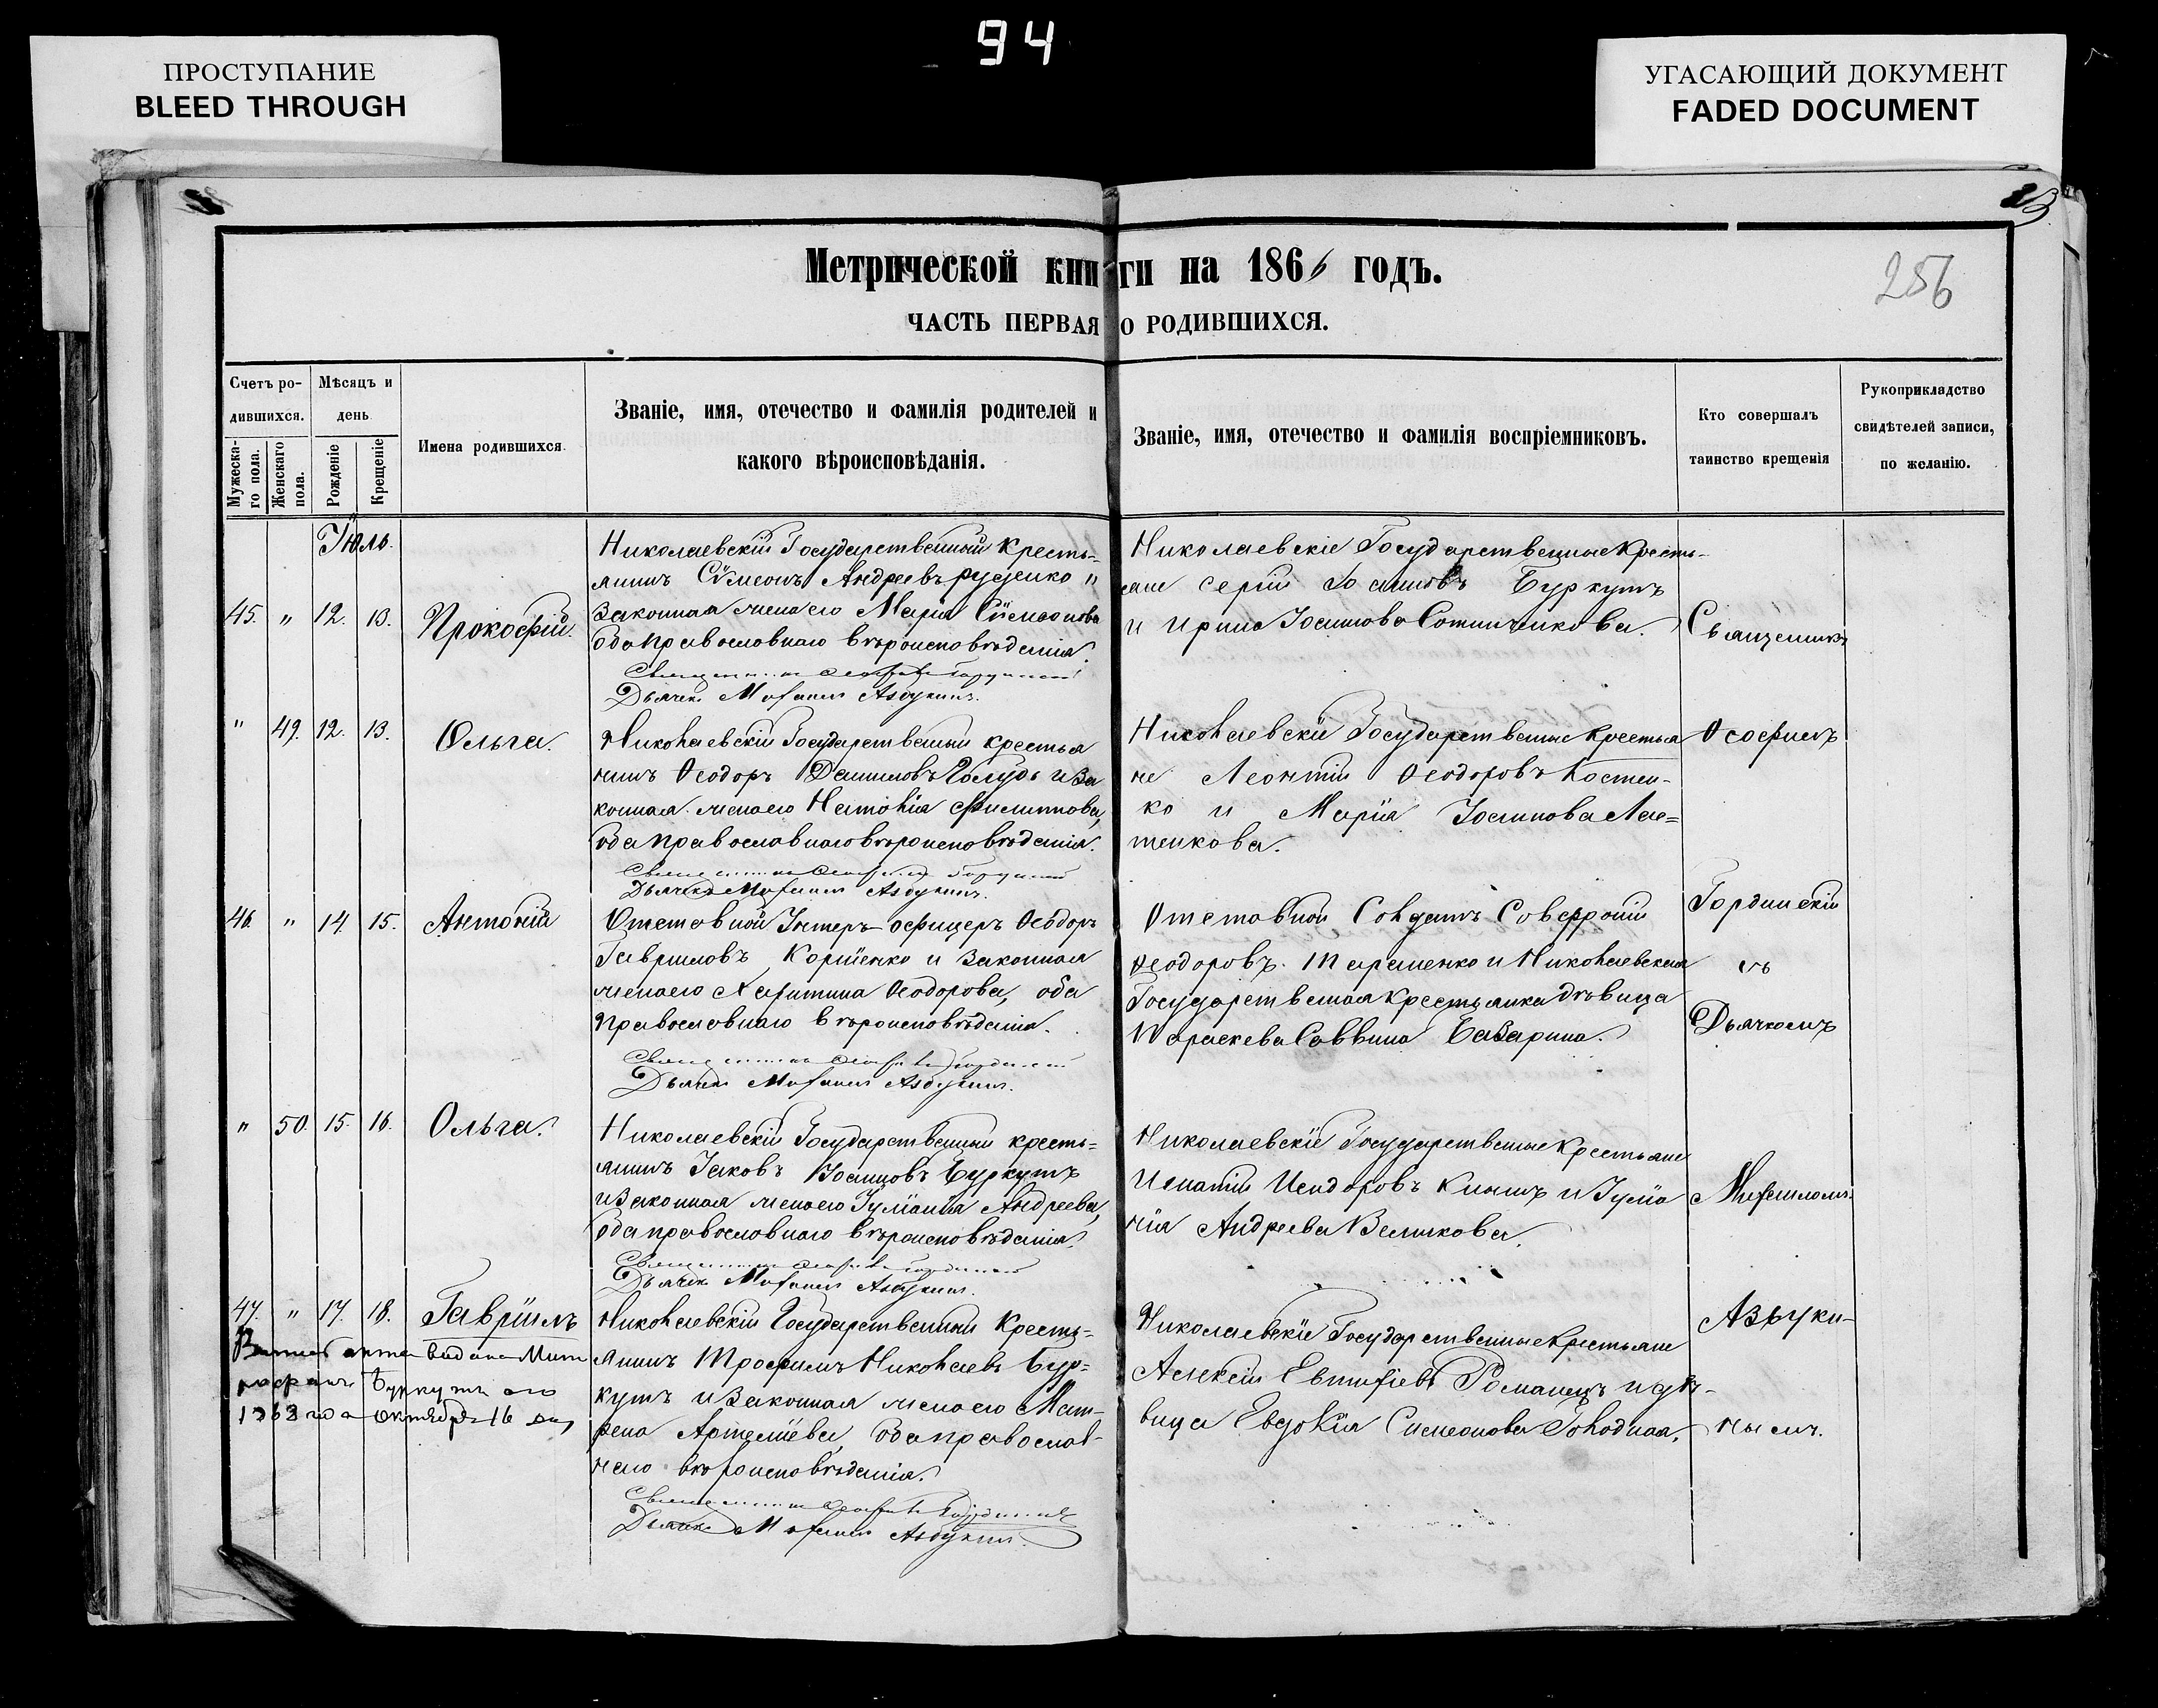 94
ПРОСТУПАНИЕ
BLEED THROUGH
УГАСАЮЩИЙ ДОКУМЕНТ
FADED DOCUMENT
Метрической книги на 1866 годъ.
256
ЧАСТЬ ПЕРВАЯ О РОДИВШИХСЯ.
Счетъ ро-
дившихся.
Мужеска-
го пола.
Женскаго
пола.
Мѣсяцъ и
день
Рожденіе
Крещеніе
Имена родившихся.
Званіе, имя, отечество и фамилія родителей и
какого вѣроисповѣданія.
Званіе, имя, отечество и фамилія воспріемниковъ.
Кто совершалъ
таинство крещенія
Рукоприкладство
свидѣтелей записи,
по желанію.
Іюль.
45. " 12. 13. Прокофій.
Николаевскій Государственный кресть-
янинъ Сѵмеонъ Андреевъ Руденко и
законная жена его Марія Сѵмеонова
оба православнаго вѣроисповѣданія.
Дьячекъ Азбукинъ.
Николаевскіе Государственные Кресть-
яне Сергій Іоанновъ Буркутъ
и Ирина Іоаннова Сотниченкова.
Священникъ
" 49. 12. 13. Ольга.
Николаевскій Государственный крестья
нинъ Ѳеодоръ Даниловъ Голубъ и за
конная жена его Наталія Филиппова,
оба православнаго вѣроисповѣданія.
Дьячекъ Азбукинъ.
Николаевскіе Государственные крестья
не Леонтій Ѳеодоровъ Костен-
ко и Марія Іоаннова Лае=
тенкова.
Ѳеофилъ
46. " 14. 15. Антоній
Отставной Унтеръ-офицеръ Ѳеодоръ
Гавриловъ Корніенко и законная
жена его Харитина Ѳеодорова, оба
православнаго вѣроисповѣданія.
Дьячекъ Азбукинъ.
Отставной Солдатъ Софроній
Ѳеодоровъ Тараненко и Николаевская
Государственная крестьянка дѣвица
Параскева Саввина Базарина.
Гординскій
съ
Дьячкомъ
" 50. 15. 16. Ольга.
Николаевскій Государственный кресть=
янинъ Іаковъ Іоанновъ Буркутъ
и законная жена его Іуліанія Андреева,
оба православнаго вѣроисповѣданія.
Дьячекъ Азбукинъ.
Николаевскіе Государственные Крестьяне
Игнатій Исидоровъ Книшъ и Іуліа
нія Андреева Великова.
Михаиломъ
47. " 17. 18. Гавріилъ
актa выдана
Буркутъ его
1868 года Октября 16 дня
Николаевскій Государственный Кресть=
янинъ Трофимъ Николаевъ Бур=
кутъ и законная жена его Мат-
рена Артеміева, оба православ-
наго вѣроисповѣданія.
Дьячекъ Азбукинъ.
Николаевскіе Государственные Крестьяне
Алексій Евтихіевъ Романецъ и дѣ-
вица Евдокія Симеонова Голодная.
Азбуки-
нымъ.